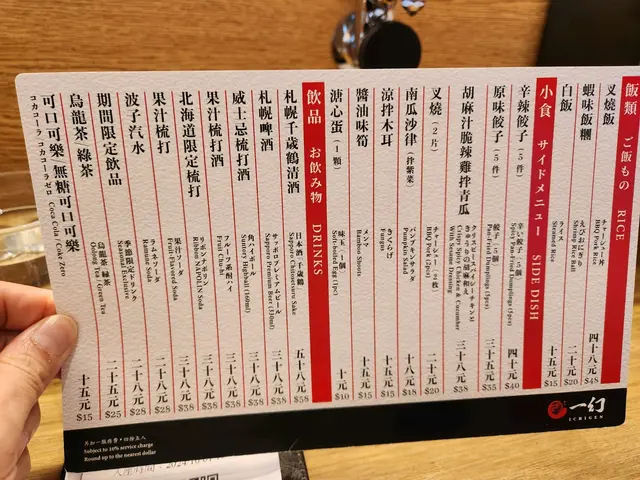 飯類 ご飯もの RICE
叉燒飯 チャーシュー丼 BBQ Pork Rice 四十八元 $48
蝦味飯糰 えびおにぎり Shrimp Rice Ball 二十元 $20
白飯 ライス Steamed Rice 十五元 $15
小食 サイドメニュー SIDE DISH
辛辣餃子(5件) 辛い餃子(5個) Spicy Pan-Fried Dumplings (5pcs) 四十元 $40
原味餃子(5件) 餃子(5個) Pan-Fried Dumplings (5pcs) 三十五元 $35
胡麻汁脆辣雞拌青瓜 クリスピースパイシーチキンときゅうりの胡麻和え Crispy Spicy Chicken & Cucumber With Sesame Dressing 三十八元 $38
叉燒(2片) チャーシュー(2枚) BBQ Pork (2pcs) 二十元 $20
南瓜沙律(拌紫菜) パンプキンサラダ Pumpkin Salad 十八元 $18
涼拌木耳 きくらげ Fungus 十五元 $15
醬油味筍 メンマ Bamboo Shoots 十五元 $15
溏心蛋(1顆) 味玉(1個) Soft-boiled Egg (1pc) 十元 $10
飲品 お飲み物 DRINKS
札幌千歲鶴清酒 日本酒 千歳鶴 Sapporo Chitosetsuru Sake 五十八元 $58
札幌啤酒 サッポロプレミアムビール Sapporo Premium Beer (330ml) 三十八元 $38
威士忌梳打酒 角ハイボール Suntory Highball (160ml) 三十八元 $38
果汁梳打酒 フルーツ系酎ハイ Fruit Chu-hi 三十八元 $38
北海道限定梳打 リボンナポリン Ribbon NAPOLIN Soda 三十八元 $38
果汁梳打 果汁ソーダ Fruit-Flavored Soda 二十八元 $28
波子汽水 ラムネソーダ Ramune Soda 二十八元 $28
期間限定飲品 季節限定ドリンク Seasonal Exclusive 二十五元 $25
烏龍茶/綠茶 烏龍茶/緑茶 Oolong Tea / Green Tea
可口可樂/無糖可口可樂 コカコーラ/コカコーラゼロ Coca Cola / Coke Zero 十五元 $15
一幻
ICHIGEN
另加一服務費,四捨五入
Subject to 10% service charge
Round up to the nearest dollar